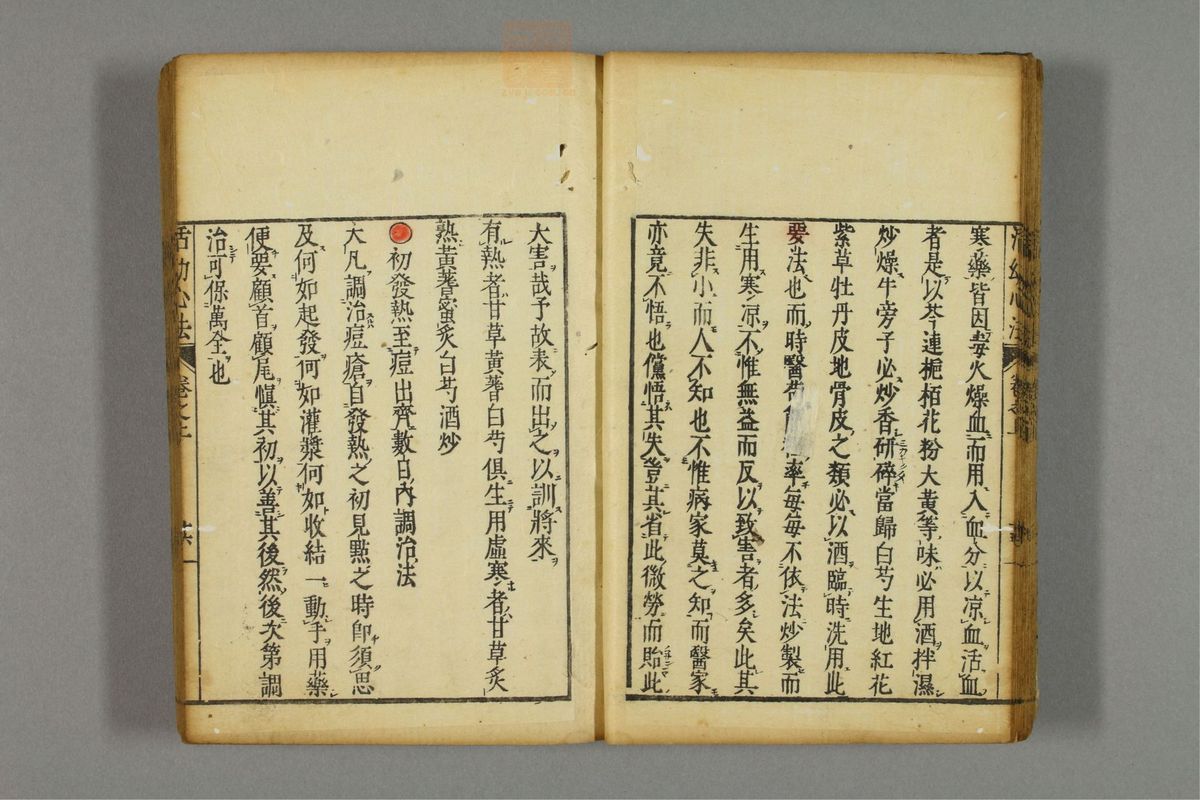 寒藥皆因毒火燥血而用入血分以凉血活血
者是以芩連梔栢花粉大黃等味必用酒拌濕
炒燥牛旁子必炒香研碎當歸白芍生地紅花
紫草牡丹皮地骨皮之類必以酒臨時洗用此
要法也而時醫苟率每每不依法炒製而
生用寒凉不惟無益而反以致害者多矣此其
失非小而人不知也不惟病家莫之知而醫家
亦竟不悟也儻悟其失豈其省此微勞而貽此
大害哉予故表而出之以訓將來
有熱者甘草黃蓍白芍俱生用虛寒者甘草炙
熟黃蓍蜜炙白芍酒炒
初發熱至痘出齊數日內調治法
大凡調治痘瘡自發熱之初見點之時卽須思
及何如起發何如灌漿何如收結一動手用藥
便要顧首顧尾愼其初以善其後然後次第調
治可保萬全也
活幼心法 卷之二